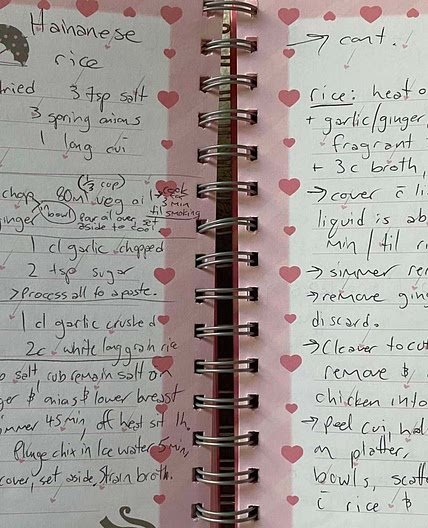 Hainanese
rice
ried 3 tsp salt
3 spring onions
1 long cui
(1/3 cup)
chop 80ml veg oil → cook
3 min
til smoking
ginger bowl pour oil over
aside to cool
1 cl garlic chopped
2 tsp sugar
> Process all to a paste.
1 cl garlic crushed
2c white long grain rice
salt, rub remain salt on
ger & onions & lower breast
immer 45 min, off heat sit 1h.
Plunge chix in Ice water 5 min,
cover, set aside, Strain broth.
→ cont.
rice: heat o
+ garlic/ginger,
fragrant
+ 3c broth,
→ cover c̄ li
liquid is ab
min / til r
→ simmer re
→ remove ging
discard.
→ Cleaver to cut
remove &
chicken into
→ peel cui, hal
on platter,
bowls, scatt
c̄ rice &